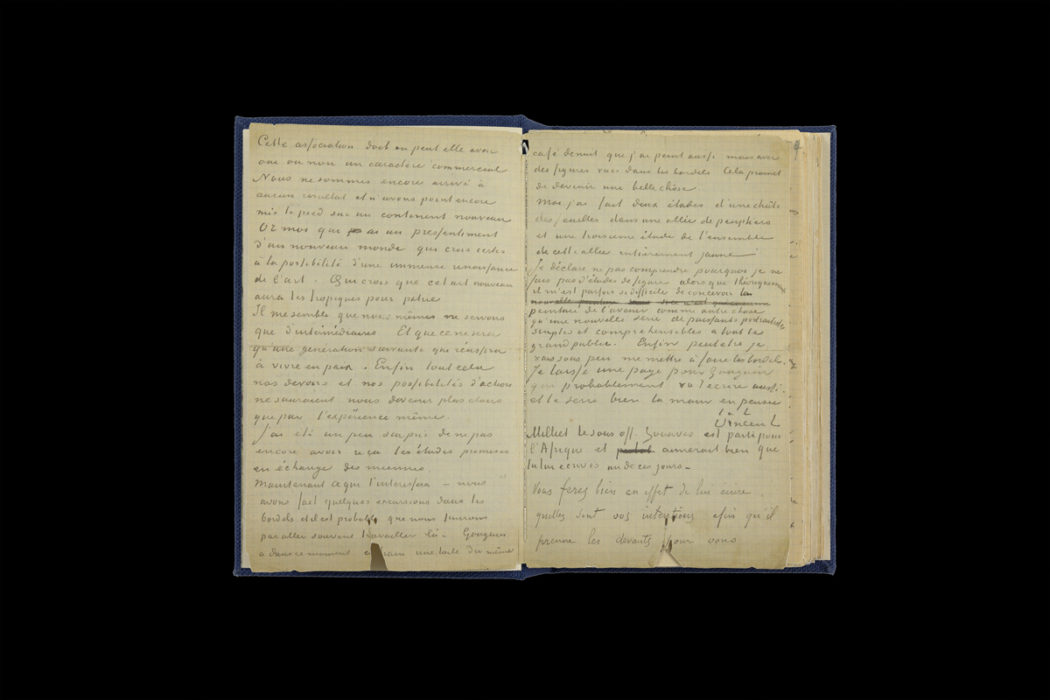 Cette association doit ou peut elle avoir
oui ou non un caractère commercial
Nous ne sommes encore arrivé à
aucun résultat et n'avons point encore
mis le pied sur un continent nouveau
Or moi qui ai un pressentiment
d'un nouveau monde qui crois certes
à la possibilité d'une immense renaissance
de l'art. Qui crois que cet art nouveau
aura les tropiques pour patrie
Il me semble que nous mêmes ne servons
que d'intermédiaires. Et que ce ne sera
qu'une génération suivante qui réussira
à vivre en paix. Enfin tout cela
nos devoirs et nos possibilités d'action
ne sauraient nous devenir plus clairs
que par l'expérience même.
J'ai été un peu surpris de ne pas
encore avoir reçu les études promises
en échange des miennes.
Maintenant a qui t'interessera – nous
avons fait quelques excursions dans les
bordels et il est probable que nous finirons
par aller souvent travailler là. Gauguin
a dans ce moment en train une toile du même
café de nuit que j'ai peint aussi mais avec
des figures vues dans les bordels. Cela promet
de devenir une belle chose
moi j'ai fait deux études d'une chûte
des feuilles dans une allée de peupliers
et une troisième étude de l'ensemble
de cette allée entièrement jaune
Je déclare ne pas comprendre pourquoi je ne
fais pas d'études de figures alors que théoriquement
il m'est parfois si difficile de concevoir la
peinture de l'avenir comme autre chose
qu'une nouvelle série de puissants portraitistes
simples et compréhensibles a tout le
grand public. Enfin peutetre je
vais sous peu me mettre à faire les bordels.
Je laisse une page pour Gauguin
qui probablement va t'ecrire aussi.
et te serre bien la main en pensée
t. à t.
Vincent
Milliet le sous off. Zouaves est parti pour
l'Afrique et aimerait bien que
tu lui écrives un de ces jours –
Vous ferez bien en effet de lui écrire
quelles sont vos intentions afin qu'il
prenne les devants pour vous